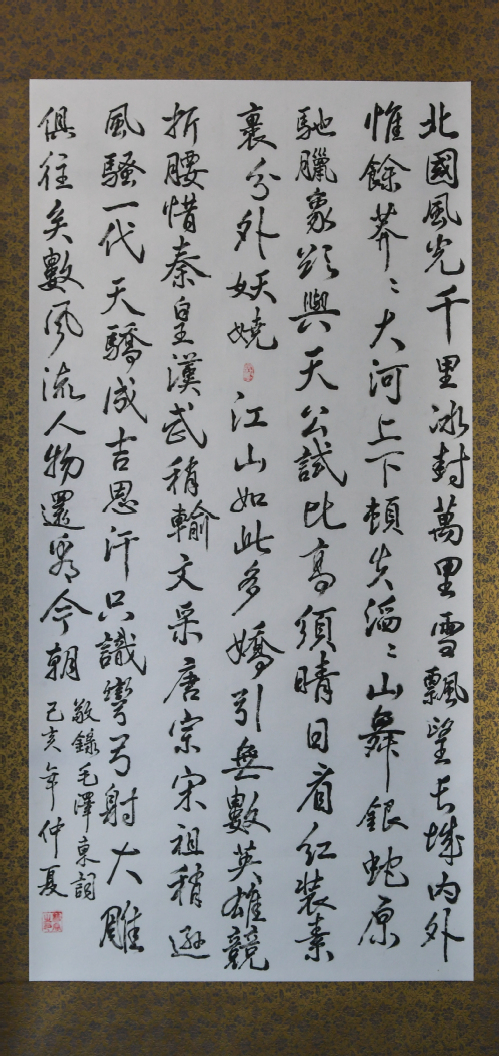 北國風光千里冰封萬里雪飄望長城内外
惟餘莽々大河上下頓失滔々山舞銀蛇原
馳臘象欲與天公試比高須晴日看紅裝素
裹分外妖嬈江山如此多嬌引無數英雄競
折腰惜秦皇漢武稍輸文采唐宗宋祖稍遜
風騷一代天驕成吉思汗只識彎弓射大雕
俱往矣數風流人物還看今朝
敬錄毛澤東詞
己亥年仲夏